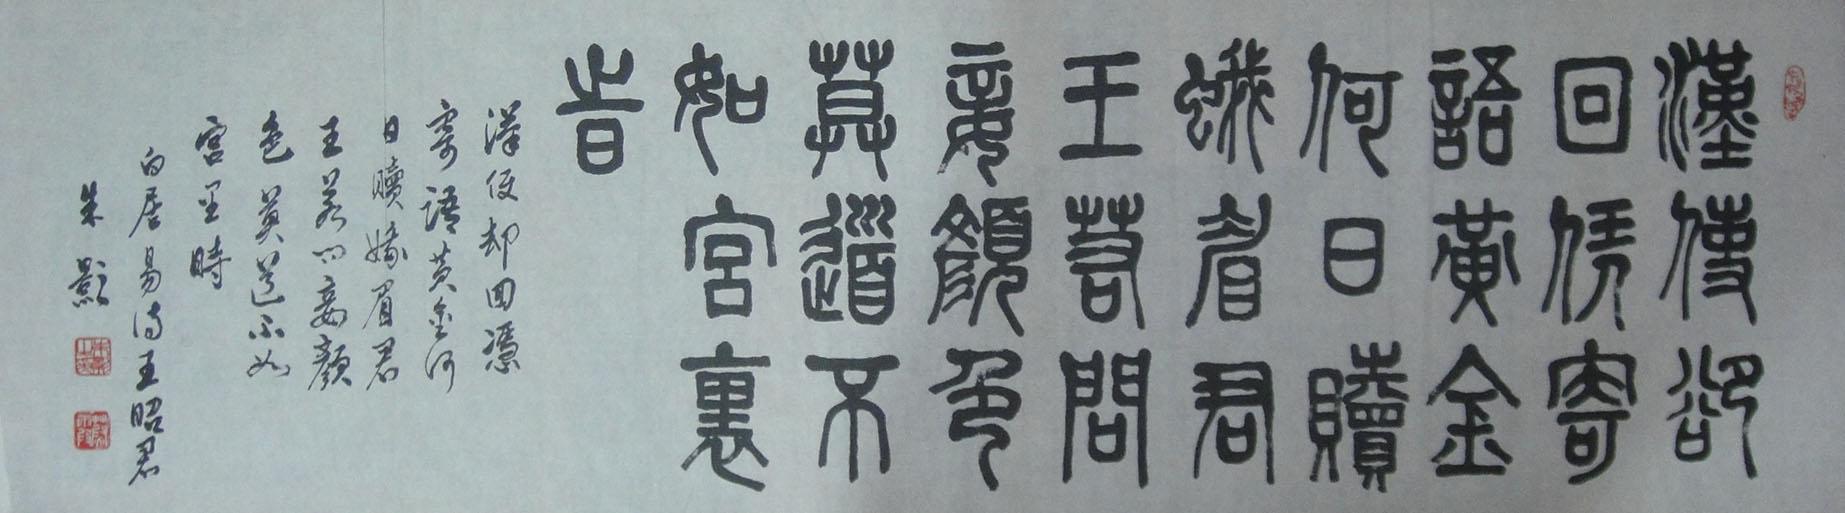 漢使卻
回凭寄
語黃金
何日贖
蛾眉君
王若問
妾顏色
莫道不
如宮裏
時
漢使却回憑
寄語黄金何
日贖蛾眉君
王若问妾顔
色莫道不如
宮里時
白居易诗王昭君
朱影